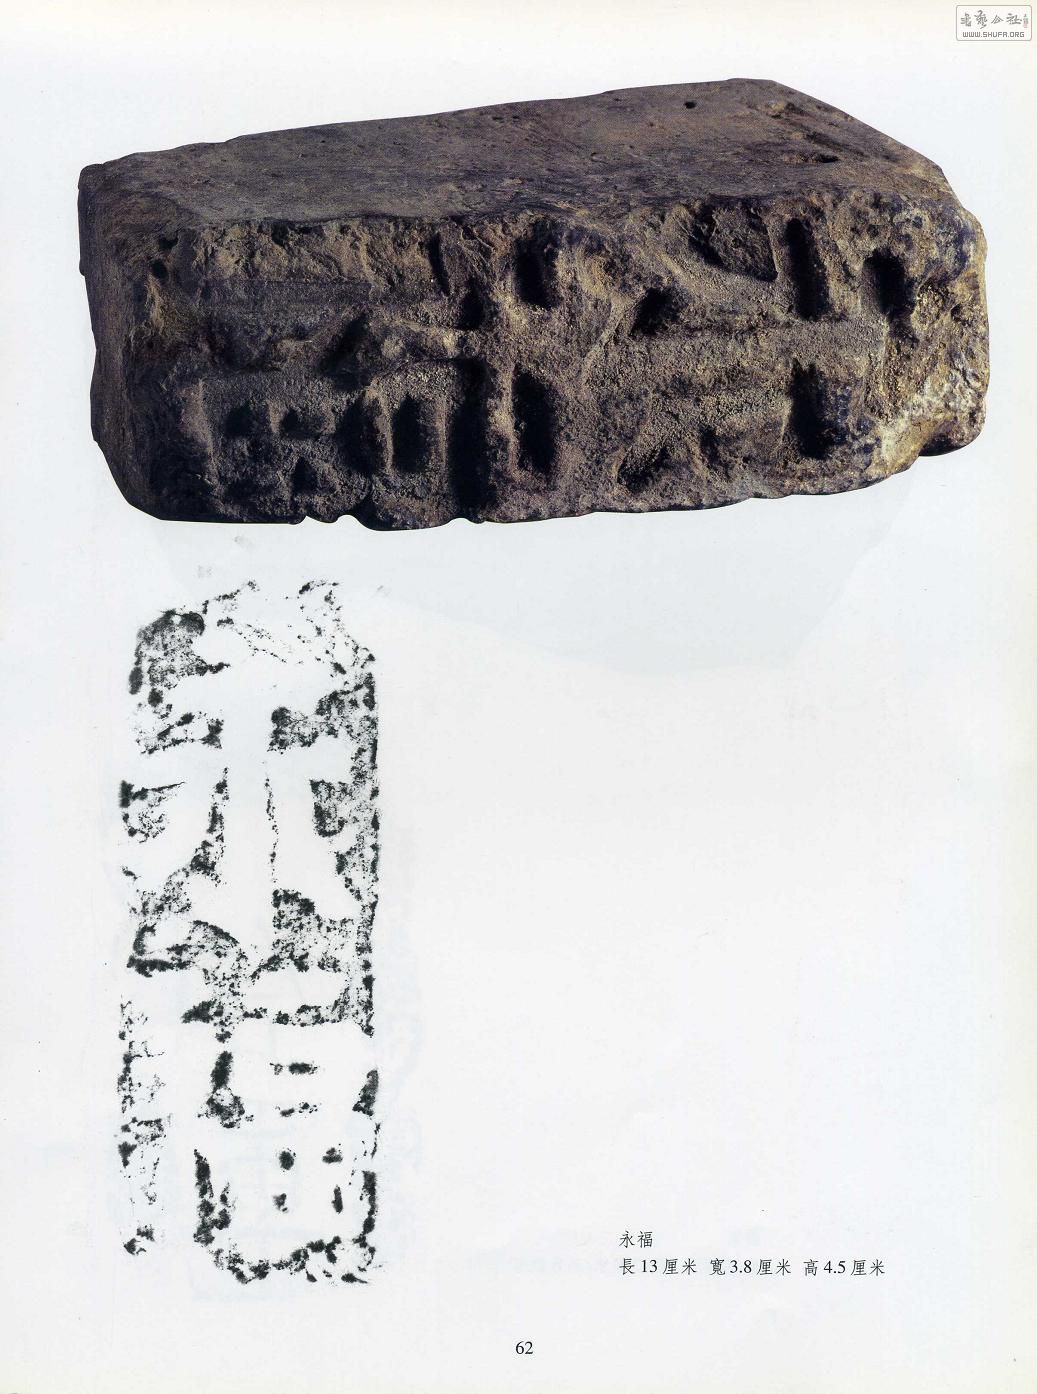 書法公社
WWW.SHUFA.ORG
永福
永福
長13厘米 寬3.8厘米 高4.5厘米
62